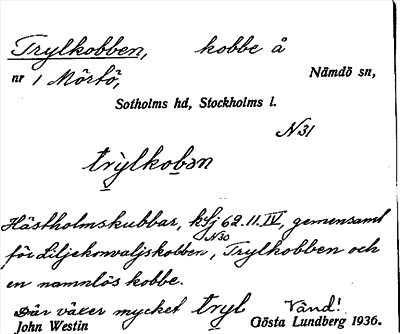 Trylkobben, kobbe å
nr 1 Mörtö, Nämdö sn,
Sotholms hd, Stockholms l.
N31
trỳlkobən
Hästholmskubbar, kSj 62.11.IV, gemensamt
N30
för Liljekonvaljskobben, Trylkobben och
en namnlös kobbe.
Där växer mycket tryl Vänd!
John Westin Gösta Lundberg 1936.